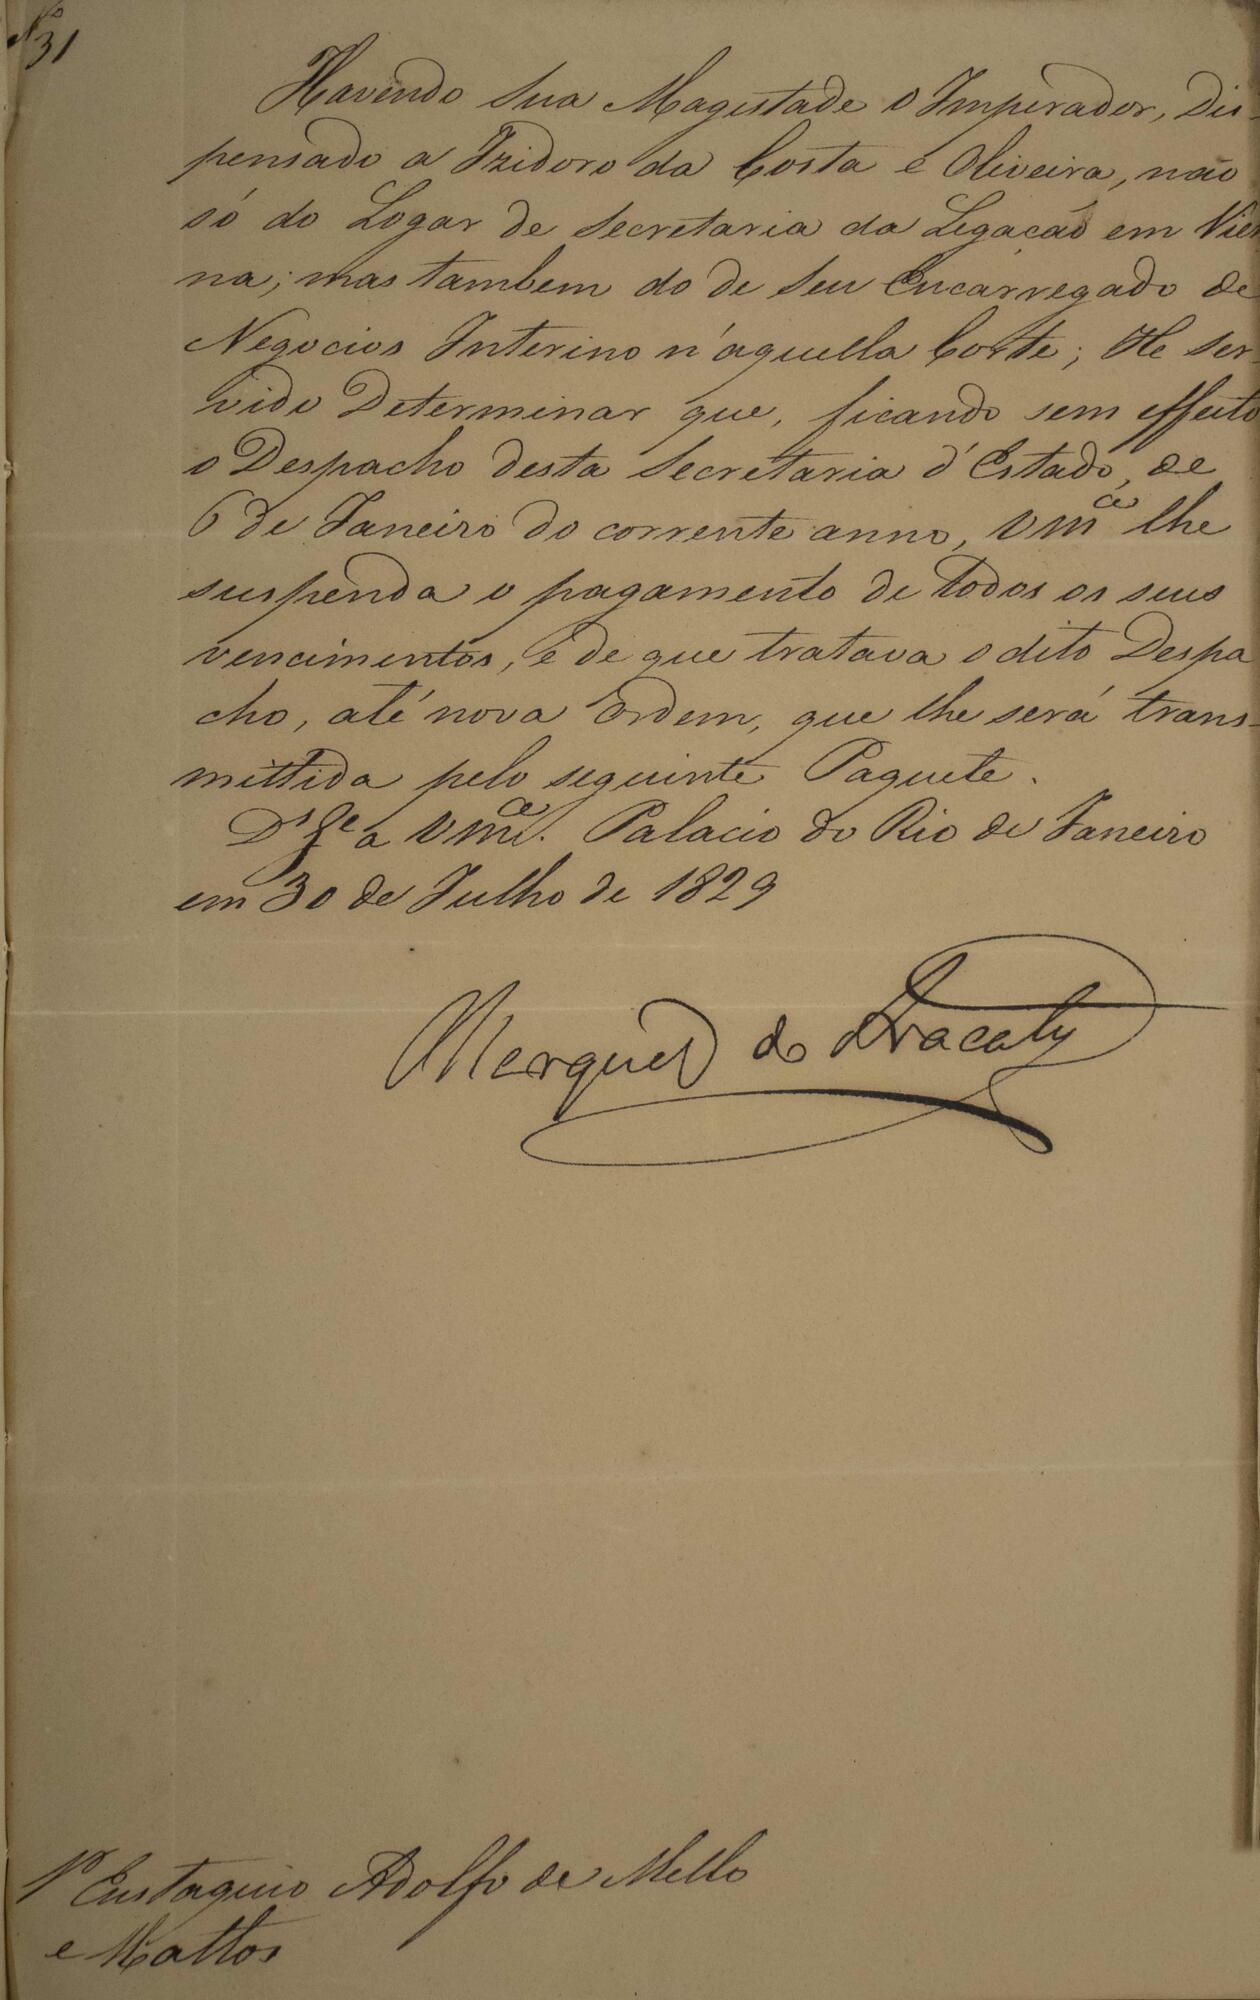 Nº 31
Havendo Sua Magestade o Imperador, Dis-
pensado a Izidoro da Costa e Oliveira, não
só do Logar de Secretaria da Legação em Vien
na; mas tambem do de Seu Encarregado de
Negocios Interino n'aquella Corte; He Ser-
vido Determinar que, ficando sem effeito
o Despacho desta Secretaria d'Estado, de
6 de Janeiro do corrente anno, Vm.ce lhe
suspenda o pagamento de todos os seus
vencimentos, e de que tratava o dito Despa
cho, até nova Ordem, que lhe será trans-
mittida pelo seguinte Paquete.
D.s G.e a Vm.ce. Palacio do Rio de Janeiro
em 30 de Julho de 1829
Marquez do Aracaty
Nº Eustaquio Adolfo de Mello
e Mattos